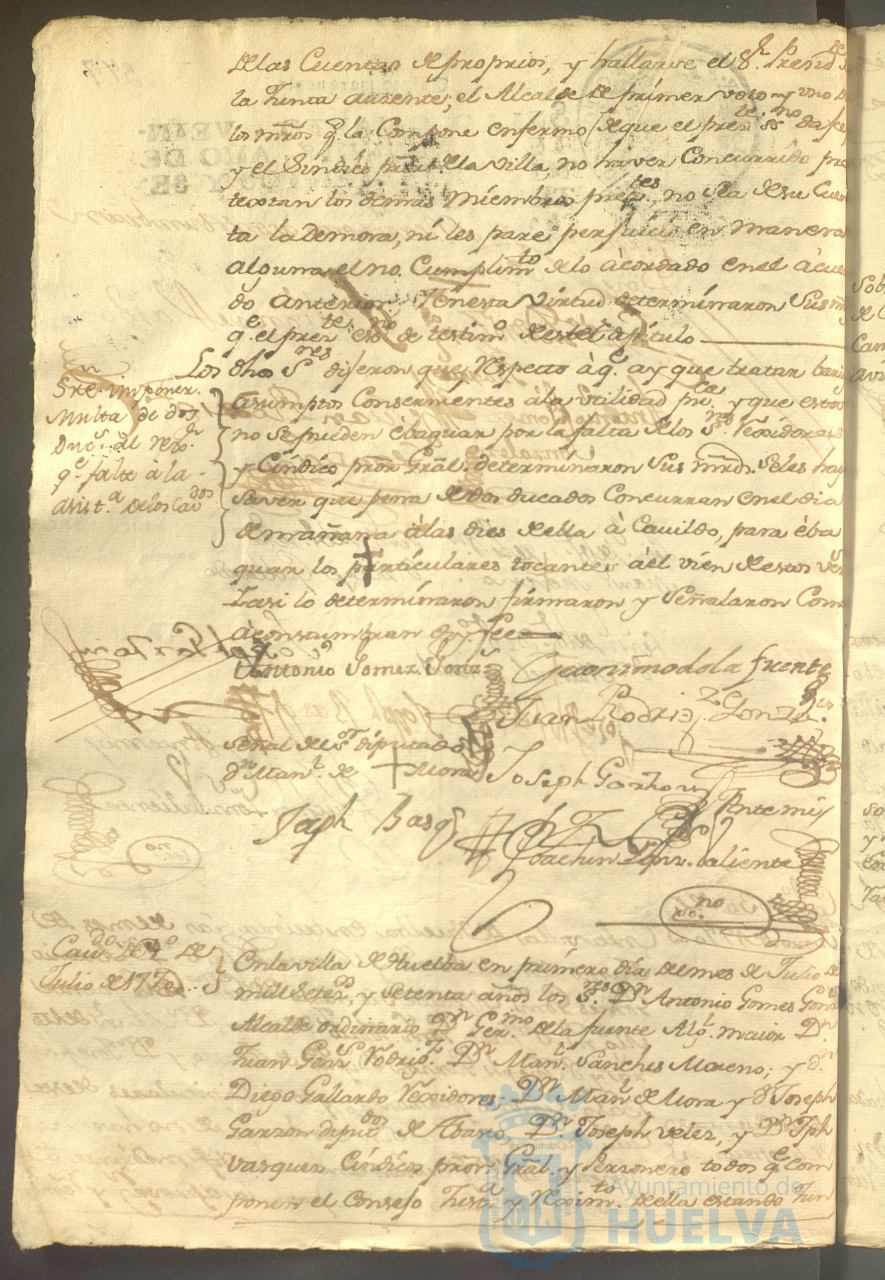 de las Cuentas de proprios, y hallarse el S.r Presid.te
la Junta ausente, el Alcalde de primer voto y uno de
los mros q.e la Compone enfermo (de que el pres.te ss.no da fee
y el Síndico de la villa, no haver Concurrido pro
textan los demas Miembros pres.tes, no sea de su Cuen
ta la Demora, ni les pare perjuicio en manera
alguna el no Cumplim.to de lo acordado en el acuer
do anterior Y en esta virtud determinaron sus mrd
q.e el pres.te esno de testim.o de este Capitulo
Los dhos S.res dijeron que, respecto à q.e ay que tratar barios
Sre. imponer
Multa de dos
Duc.s al rexi.r
q.e falte à la
asist.a de los Cav.dos
asumptos Consernientes à la Utilidad pu.ca y que estos
no se pueden ebaquar por la falta de los S.res Rexidores
y Cindico pror Gral. determinaron Sus mrds. Se les haga
saver que pena de dos ducados Concurran en el dia
de mañana à las dies de ella à Cavildo, para eba
quar los particulares tocantes àel vien de estos
Y asi lo determinaron firmaron y Señalaron Como
acostumbran doy fee
Antonio Gomez Gonz.s Geronimo de la fuente
Juan Rodrig.z Gonz.
Señal del S.r diputado
d.n Man.l de + Mora Joseph Garzon
Joseph Basq Antemi
Joachin Valiente
no
Cav.do de 1.o de
Julio de 1770
En la villa de Huelba en primero dia del mes de Julio de
mill Setes y setenta años los S.res D.n Antonio Gomes Gonz
Alcalde ordinario D.n Ger.mo de la fuente Alg. maior D.n
Juan Gonz.s Rodrig. D.n Man.l Sanches Moreno; y d.n
Diego Gallardo Rexidores, D.n Man.l de Mora y d.n Joseph
Garzon diputdos de Abasto, D.n Joseph Velez, y D.n Jph
Vasquez Cindicos pror. Gral. y Personero todos q.e Com
ponen el Consejo Justa y Rexim.to de ella estando Jun
Ayuntamiento de
HUELVA